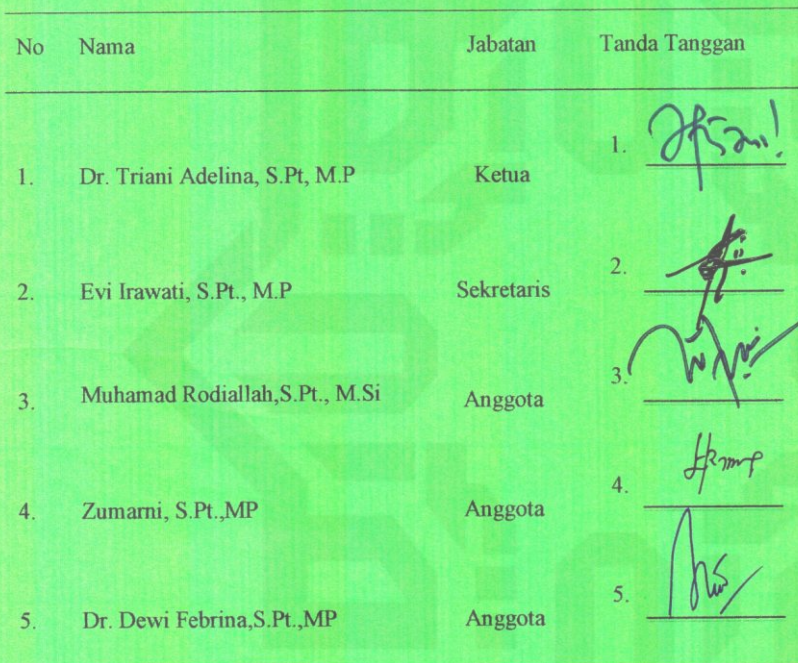 No Nama Jabatan Tanda Tanggan
1. Dr. Triani Adelina, S.Pt, M.P Ketua 1.
2. Evi Irawati, S.Pt., M.P Sekretaris 2.
3. Muhamad Rodiallah,S.Pt., M.Si Anggota 3.
4. Zumarni, S.Pt.,MP Anggota 4.
5. Dr. Dewi Febrina,S.Pt.,MP Anggota 5.